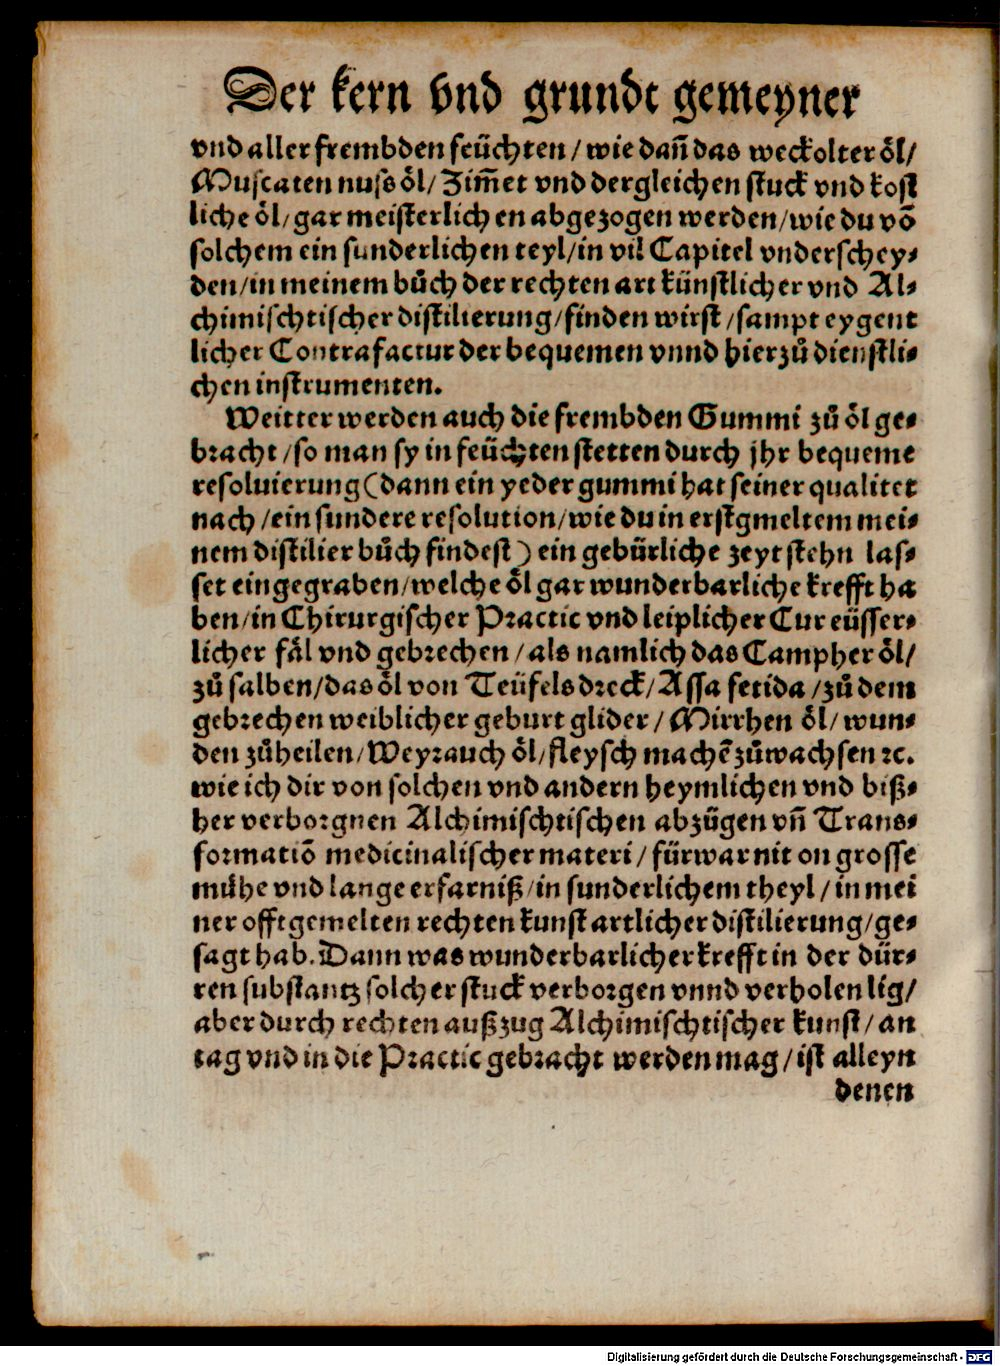 Der kern vnd grundt gemeyner
vnd aller frembden feüchten / wie dañ das weckolter öl /
Muscaten nuss öl / Zim̃et vnd dergleichen stuck vnd kost
liche öl / gar meisterlichen abgezogen werden / wie du võ
solchem ein sunderlichen teyl / in vil Capitel vnderschey⸗
den / in meinem bůch der rechten art künstlicher vnd Al⸗
chimischtischer distilierung / finden wirst / sampt eygent
licher Contrafactur der bequemen vnnd hierzů dienstli⸗
chen instrumenten.
Weitter werden auch die frembden Gummi zů öl ge⸗
bracht / so man sy in feüchten stetten durch jhr bequeme
resoluierung (dann ein yeder gummi hat seiner qualitet
nach / ein sundere resolution / wie du in erstgmeltem mei⸗
nem distilier bůch findest) ein gebürliche zeyt stehn las⸗
set eingegraben / welche öl gar wunderbarliche krefft ha
ben / in Chirurgischer Practic vnd leiplicher Cur eüsser⸗
licher fäl vnd gebrechen / als namlich das Campher öl /
zů salben / das öl von Teüfels dreck / Assa fetida / zů dem
gebrechen weiblicher geburt glider / Mirrhen öl / wun⸗
den zůheilen / Weyrauch öl / fleysch machẽ zůwachsen ꝛc.
wie ich dir von solchen vnd andern heymlichen vnd biß⸗
her verborgnen Alchimischtischen abzügen vñ Trans⸗
formatiõ medicinalischer materi / fürwar nit on grosse
mühe vnd lange erfarniß / in sunderlichem theyl / in mei
ner offtgemelten rechten kunst artlicher distilierung / ge⸗
sagt hab. Dann was wunderbarlicher krefft in der dür⸗
ren substantz solcher stuck verborgen vnnd verholen lig /
aber durch rechten außzug Alchimischtischer kunst / an
tag vnd in die Practic gebracht werden mag / ist alleyn
denen
Digitalisierung gefördert durch die Deutsche Forschungsgemeinschaft - DFG